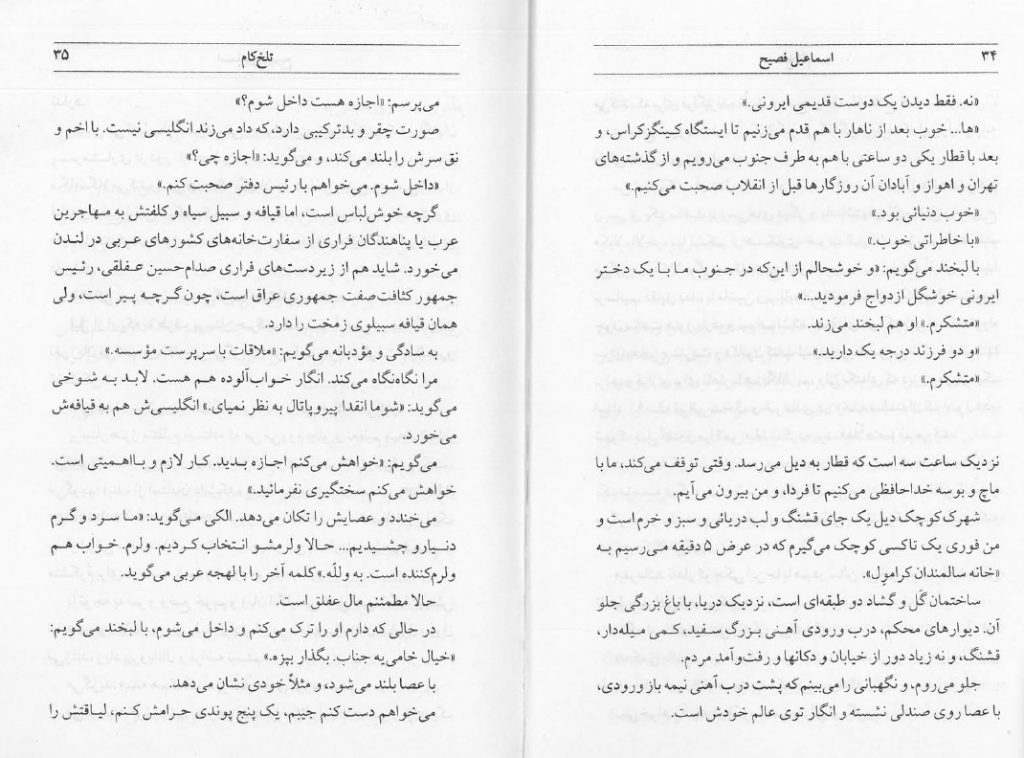 ۳۴
اسماعیل فصیح
«نه. فقط دیدن یک دوست قدیمی ایرونی.»
«ها... خوب بعد از ناهار با هم قدم می‌زنیم تا ایستگاه کینگزکراس، و
بعد با قطار یکی دو ساعتی با هم به طرف جنوب می‌رویم و از گذشته‌های
تهران و اهواز و آبادان آن روزگارها قبل از انقلاب صحبت می‌کنیم.»
«خوب دنیائی بود.»
«با خاطراتی خوب.»
با لبخند می‌گویم: «و خوشحالم از این‌که در جنوب ما با یک دختر
ایرونی خوشگل ازدواج فرمودید...»
«متشکرم.» او هم لبخند می‌زند.
«و دو فرزند درجه یک دارید.»
«متشکرم.»
نزدیک ساعت سه است که قطار به دیل می‌رسد. وقتی توقف می‌کند، ما با
ماچ و بوسه خداحافظی می‌کنیم تا فردا، و من بیرون می‌آیم.
شهرک کوچک دیل یک جای قشنگ و لب دریائی و سبز و خرم است و
من فوری یک تاکسی کوچک می‌گیرم که در عرض ۵ دقیقه می‌رسیم به
«خانه سالمندان کرامول».
ساختمان گَل و گشاد دو طبقه‌ای است، نزدیک دریا، با باغ بزرگی جلو
آن. دیوارهای محکم، درب ورودی آهنی بزرگ سفید، کمی میله‌دار،
قشنگ، و نه زیاد دور از خیابان و دکانها و رفت‌وآمد مردم.
جلو می‌روم. و نگهبانی را می‌بینم که پشت درب آهنی نیمه باز ورودی،
با عصا روی صندلی نشسته و انگار توی عالم خودش است.
تلخ‌کام
۳۵
می‌پرسم: «اجازه هست داخل شوم؟»
صورت چقر و بدترکیبی دارد، که داد می‌زند انگلیسی نیست. با اخم و
نق سرش را بلند می‌کند، و می‌گوید: «اجازه چی؟»
«داخل شوم. می‌خواهم با رئیس دفتر صحبت کنم.»
گرچه خوش‌لباس است، اما قیافه و سبیل سیاه و کلفتش به مهاجرین
عرب یا پناهندگان فراری از سفارت‌خانه‌های کشورهای عربی در لندن
می‌خورد. شاید هم از زیردست‌های فراری صدام‌حسین عفلقی، رئیس
جمهور کثافت‌صفت جمهوری عراق است، چون گرچه پیر است، ولی
همان قیافه سبیلوی زمخت را دارد.
به سادگی و مؤدبانه می‌گویم: «ملاقات با سرپرست مؤسسه.»
مرا نگاه‌نگاه می‌کند. انگار خواب‌آلوده هم هست. لابد به شوخی
می‌گوید: «شوما انقدا پیر و پاتال به نظر نمیای.» انگلیسی‌ش هم به قیافه‌ش
می‌خورد.
می‌گویم: «خواهش می‌کنم اجازه بدید. کار لازم و بااهمیتی است.
خواهش می‌کنم سختگیری نفرمائید.»
می‌خندد و عصایش را تکان می‌دهد. الکی می‌گوید: «ما سرد و گرم
دنیارو چشیدیم... حالا ولرمشو انتخاب کردیم. ولرم. خواب هم
ولرم‌کننده است. به ولله.» کلمه آخر را با لهجه عربی می‌گوید.
حالا مطمئنم مال عفلق است.
در حالی که دارم او را ترک می‌کنم و داخل می‌شوم، با لبخند می‌گویم:
«خیال خامی‌یه جناب. بگذار بپزه.»
با عصا بلند می‌شود، و مثلاً خودی نشان می‌دهد.
می‌خواهم دست کنم جیبم، یک پنج پوندی حرامش کنم، لیاقتش را